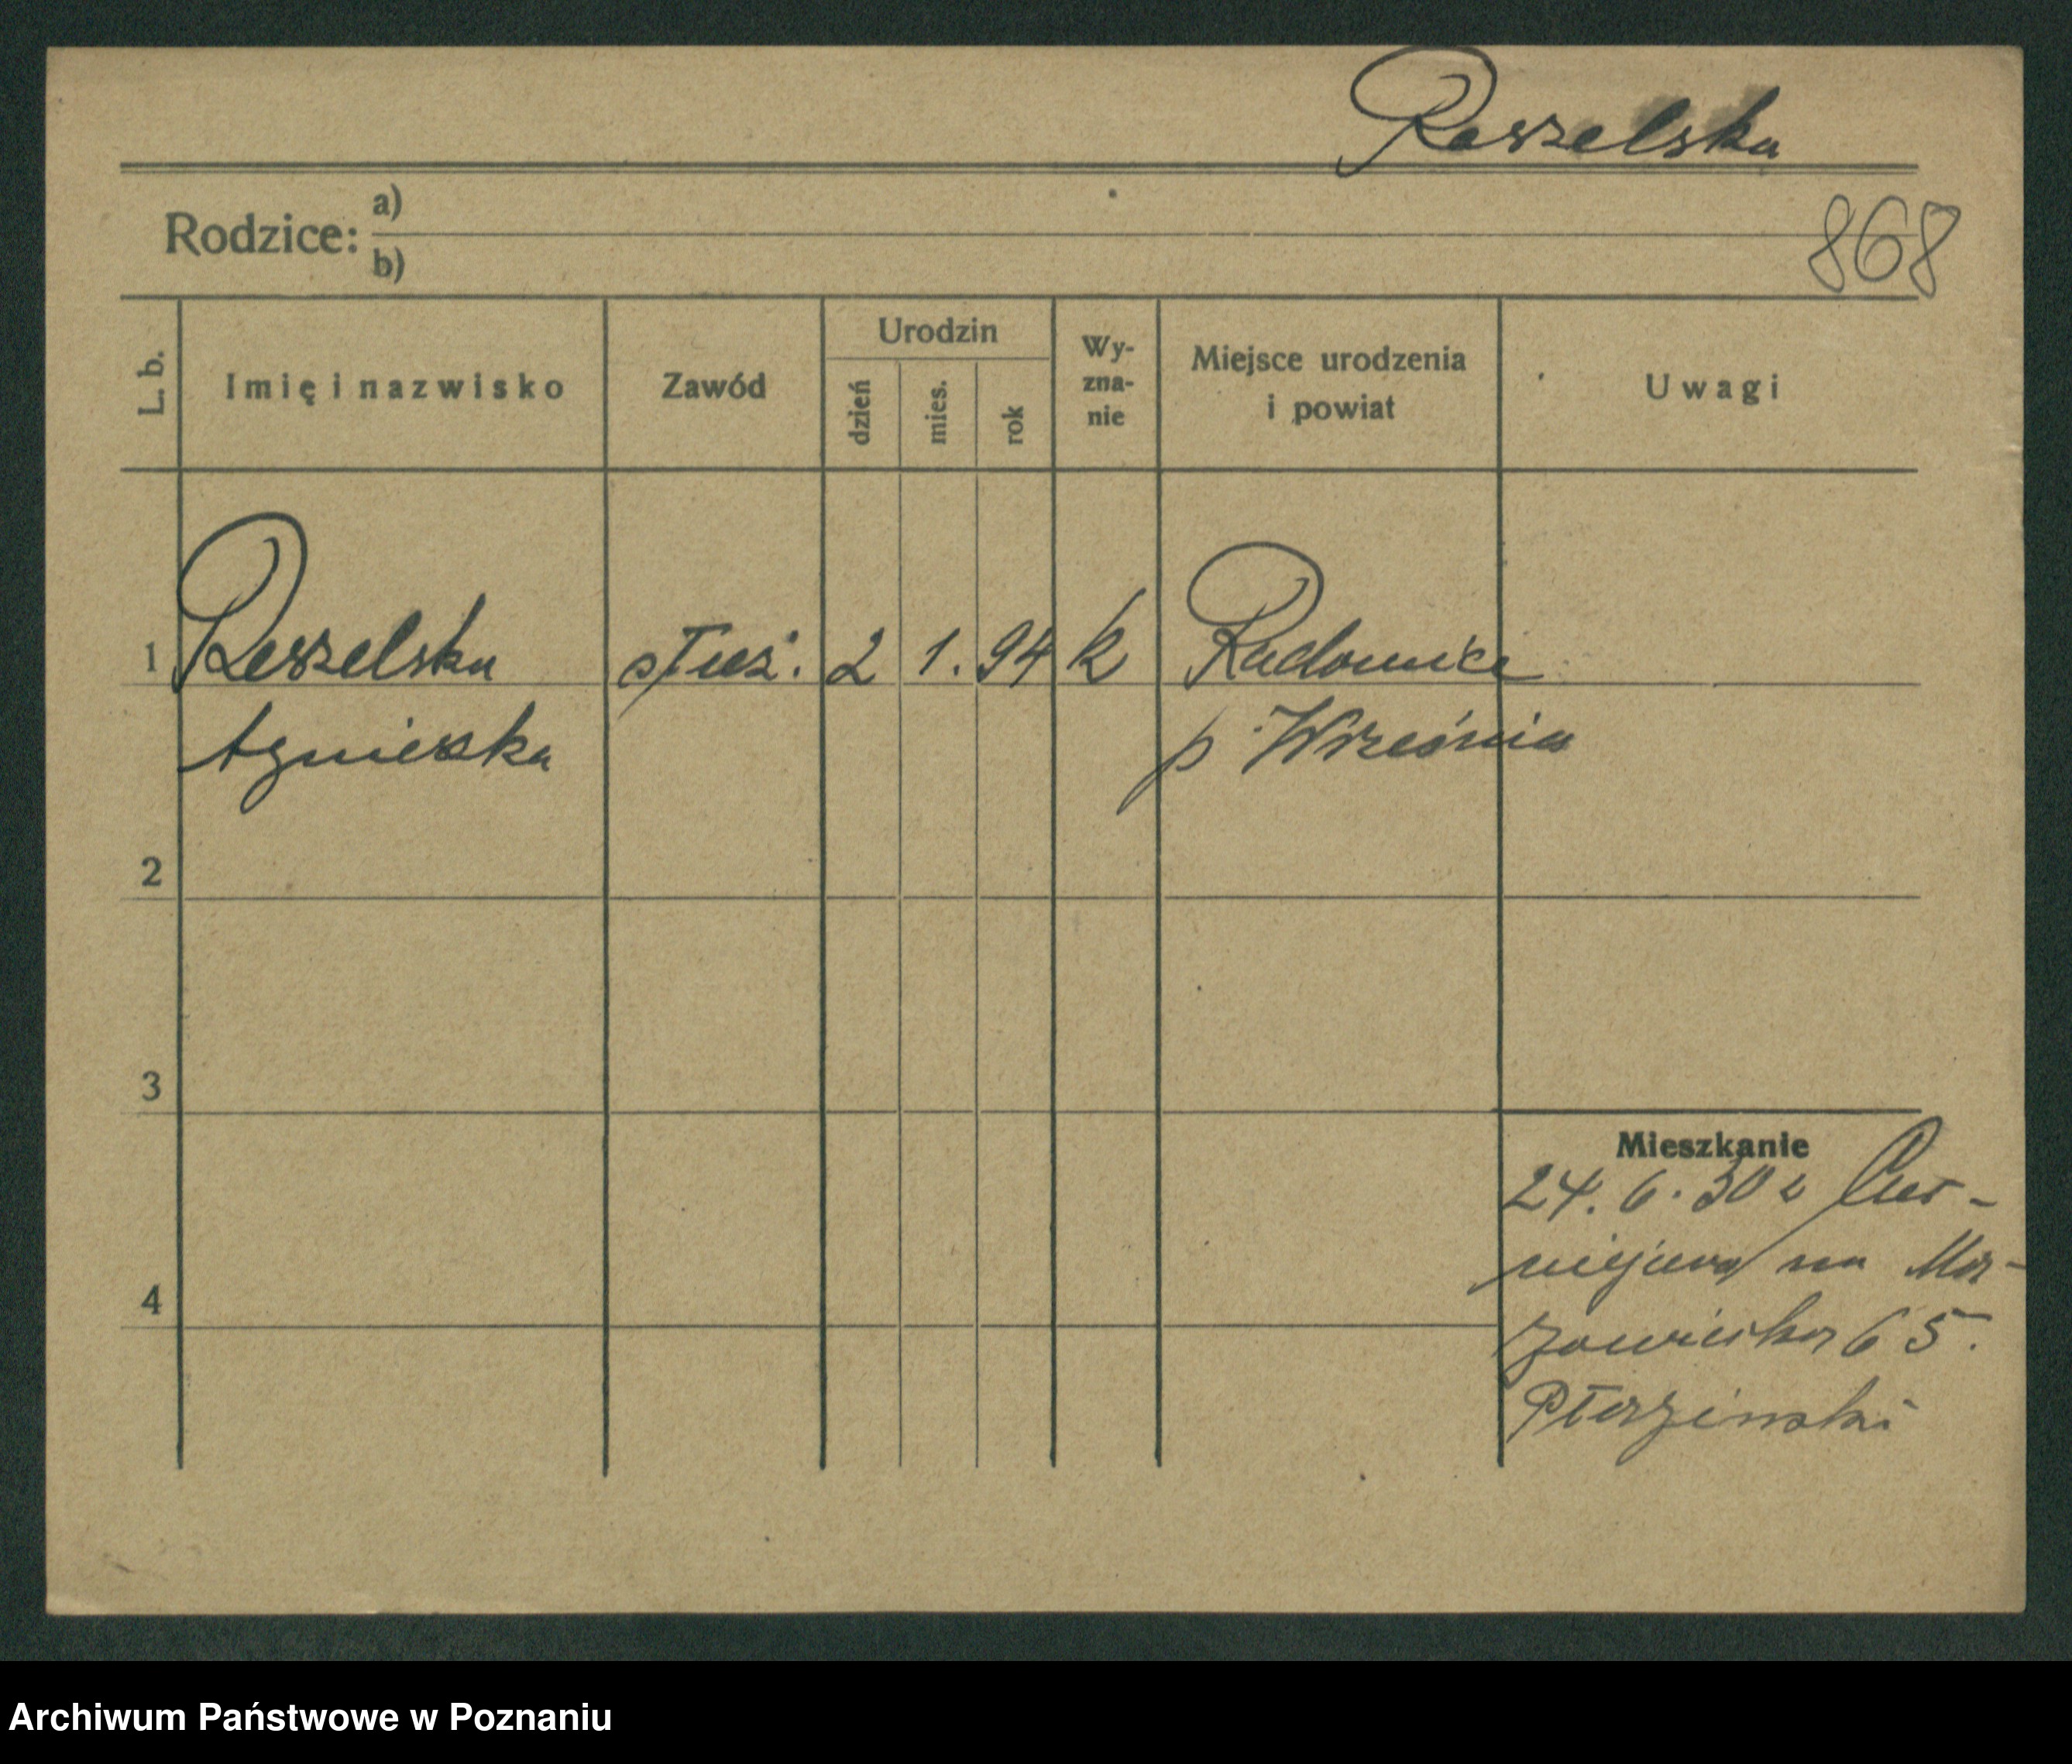 Reszelska
Rodzice: a)
b)
868
L. b. Imię i nazwisko Zawód Urodzin dzień mies. rok Wy-zna-nie Miejsce urodzenia i powiat Uwagi
1 Reszelska służ. 2 1. 94 k Radomice
Agnieszka p Września
2
3
4
Mieszkanie
24. 6. 30 z
na Ma-
zowiecka 65.
Archiwum Państwowe w Poznaniu